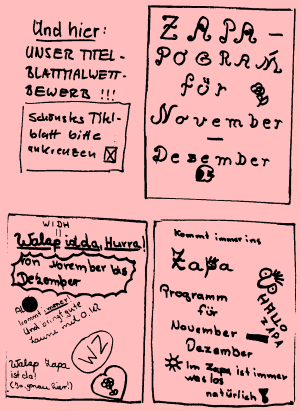 Und hier:
UNSER TITEL-
BLATTMALWETT-
BEWERB !!!
Schönstes Titel-
blatt bitte
ankreuzen
ZAPA-
POGRAM
für
November
–
Dezember
WIDH
Walap ist da, Hurra!
Von November bis
Dezember
kommt immer!
Und bringt gute
Laune mit
WZ
Walap Zapa
ist da!
(Ja, genau hier!)
Kommt immer ins
Zapa
Programm
für
November
Dezember
HALLO
ZAPA
Im Zapa ist immer
was los
natürlich!